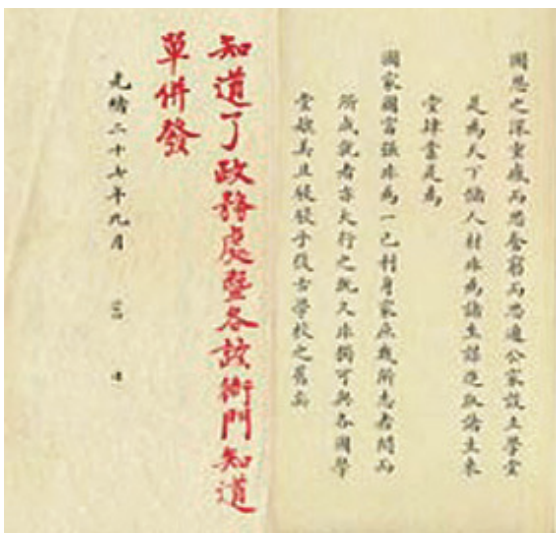 國恩之深重感而思奮窮而思通公家設立學堂
是為天下儲人材非為諸生謀進取諸生來
堂肄業是為
國家圖富強非為一己利身家庶幾所志者閎而
所成就者亦大行之既久非獨可與各國學
堂媲美且駸駸乎復古學校之舊矣
知道了政務處暨各該衙門知道
單併發
光緒二十七年九月 日